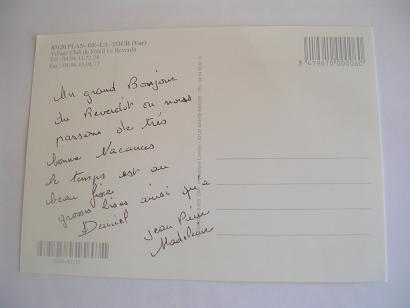 83120 PLAN-DE-LA-TOUR (Var)
Village Club du Soleil Le Reverdit
3 419610 000060
Un grand Bonjour
du Reverdit ou nous
passons de très
bonne Vacances
le temps est au
beau fixe
grosses bises ainsi qu'a
Daniel
Jean Pierre
Madeleine